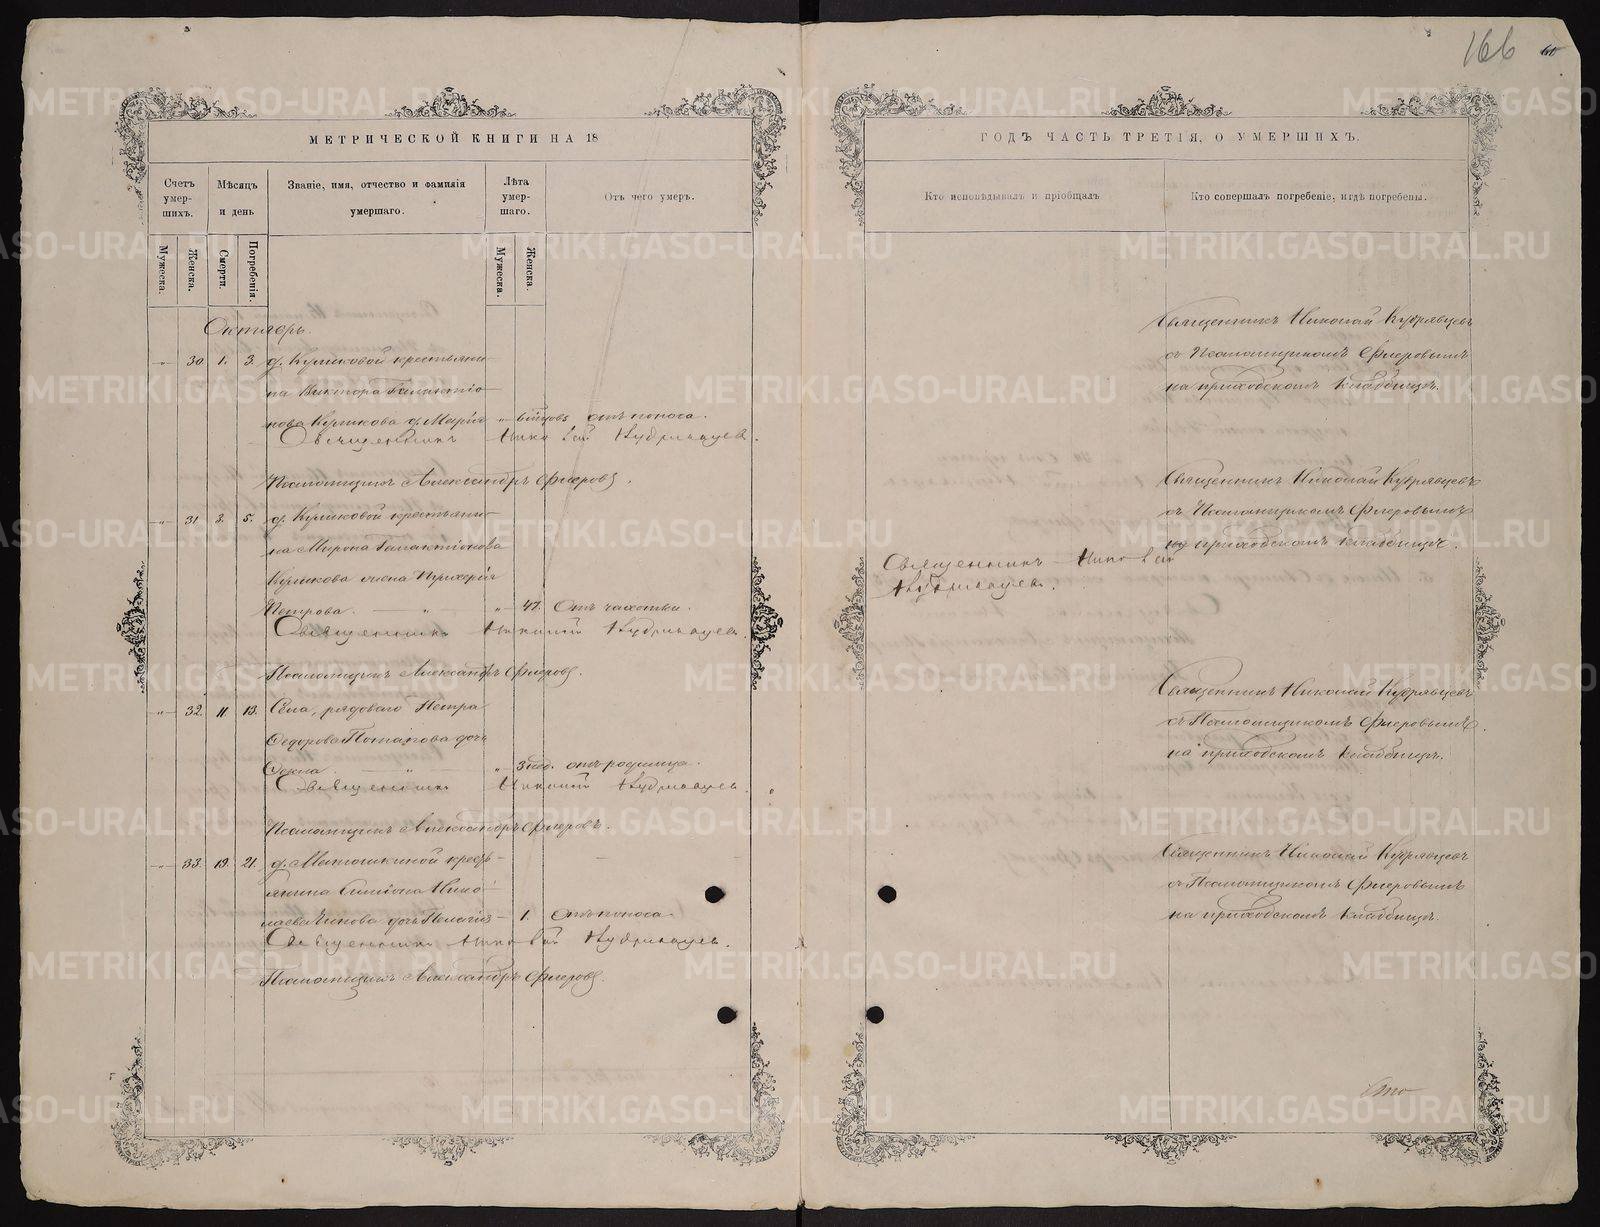 166
МЕТРИЧЕСКОЙ КНИГИ НА 18
Счетъ умер- шихъ.
Мѣсяцъ и день
Званіе, имя, отчество и фамилія умершаго.
Лѣта умер- шаго.
Отъ чего умеръ.
Мужеска.
Женска.
Смерти.
Погребенія.
Мужеска.
Женска.
Октябрь.
30. 1. 3. д. Куликовой крестьяни-
на Виктора Галактіо-
нова Куликова д. Марія отъ поноса.
Священникъ Николай Кудрявцевъ.
Псаломщикъ Александръ Флеровъ.
31. 3. 5. д. Куликовой крестьяни-
на Мирона Галактіонова
Куликова жена
Петрова. 47. Отъ чахотки.
Священникъ Николай Кудрявцевъ.
Псаломщикъ Александръ Флеровъ.
32. 11. 13. Села, рядоваго Петра
Ѳедорова Потапова дочь
отъ родимца.
Священникъ Николай Кудрявцевъ.
Псаломщикъ Александръ Флеровъ.
33. 19. 21. д. Матюшкиной кресть-
янина Симеона Нико-
лаева дочь Пелагія 1. Отъ поноса.
Священникъ Николай Кудрявцевъ.
Псаломщикъ Александръ Флеровъ.
ГОДЪ ЧАСТЬ ТРЕТІЯ, О УМЕРШИХЪ.
Кто исповѣдывалъ и пріобщалъ
Кто совершалъ погребеніе, и гдѣ погребены.
Священникъ Николай Кудрявцевъ
съ Псаломщикомъ Флеровымъ
на приходскомъ кладбищѣ.
Священникъ Николай Кудрявцевъ
съ Псаломщикомъ Флеровымъ
на приходскомъ кладбищѣ.
Священникъ Николай
Кудрявцевъ.
Священникъ Николай Кудрявцевъ
съ Псаломщикомъ Флеровымъ.
на приходскомъ кладбищѣ.
Священникъ Николай Кудрявцевъ
съ Псаломщикомъ Флеровымъ
на приходскомъ кладбищѣ.
METRIKI.GASO-URAL.RU